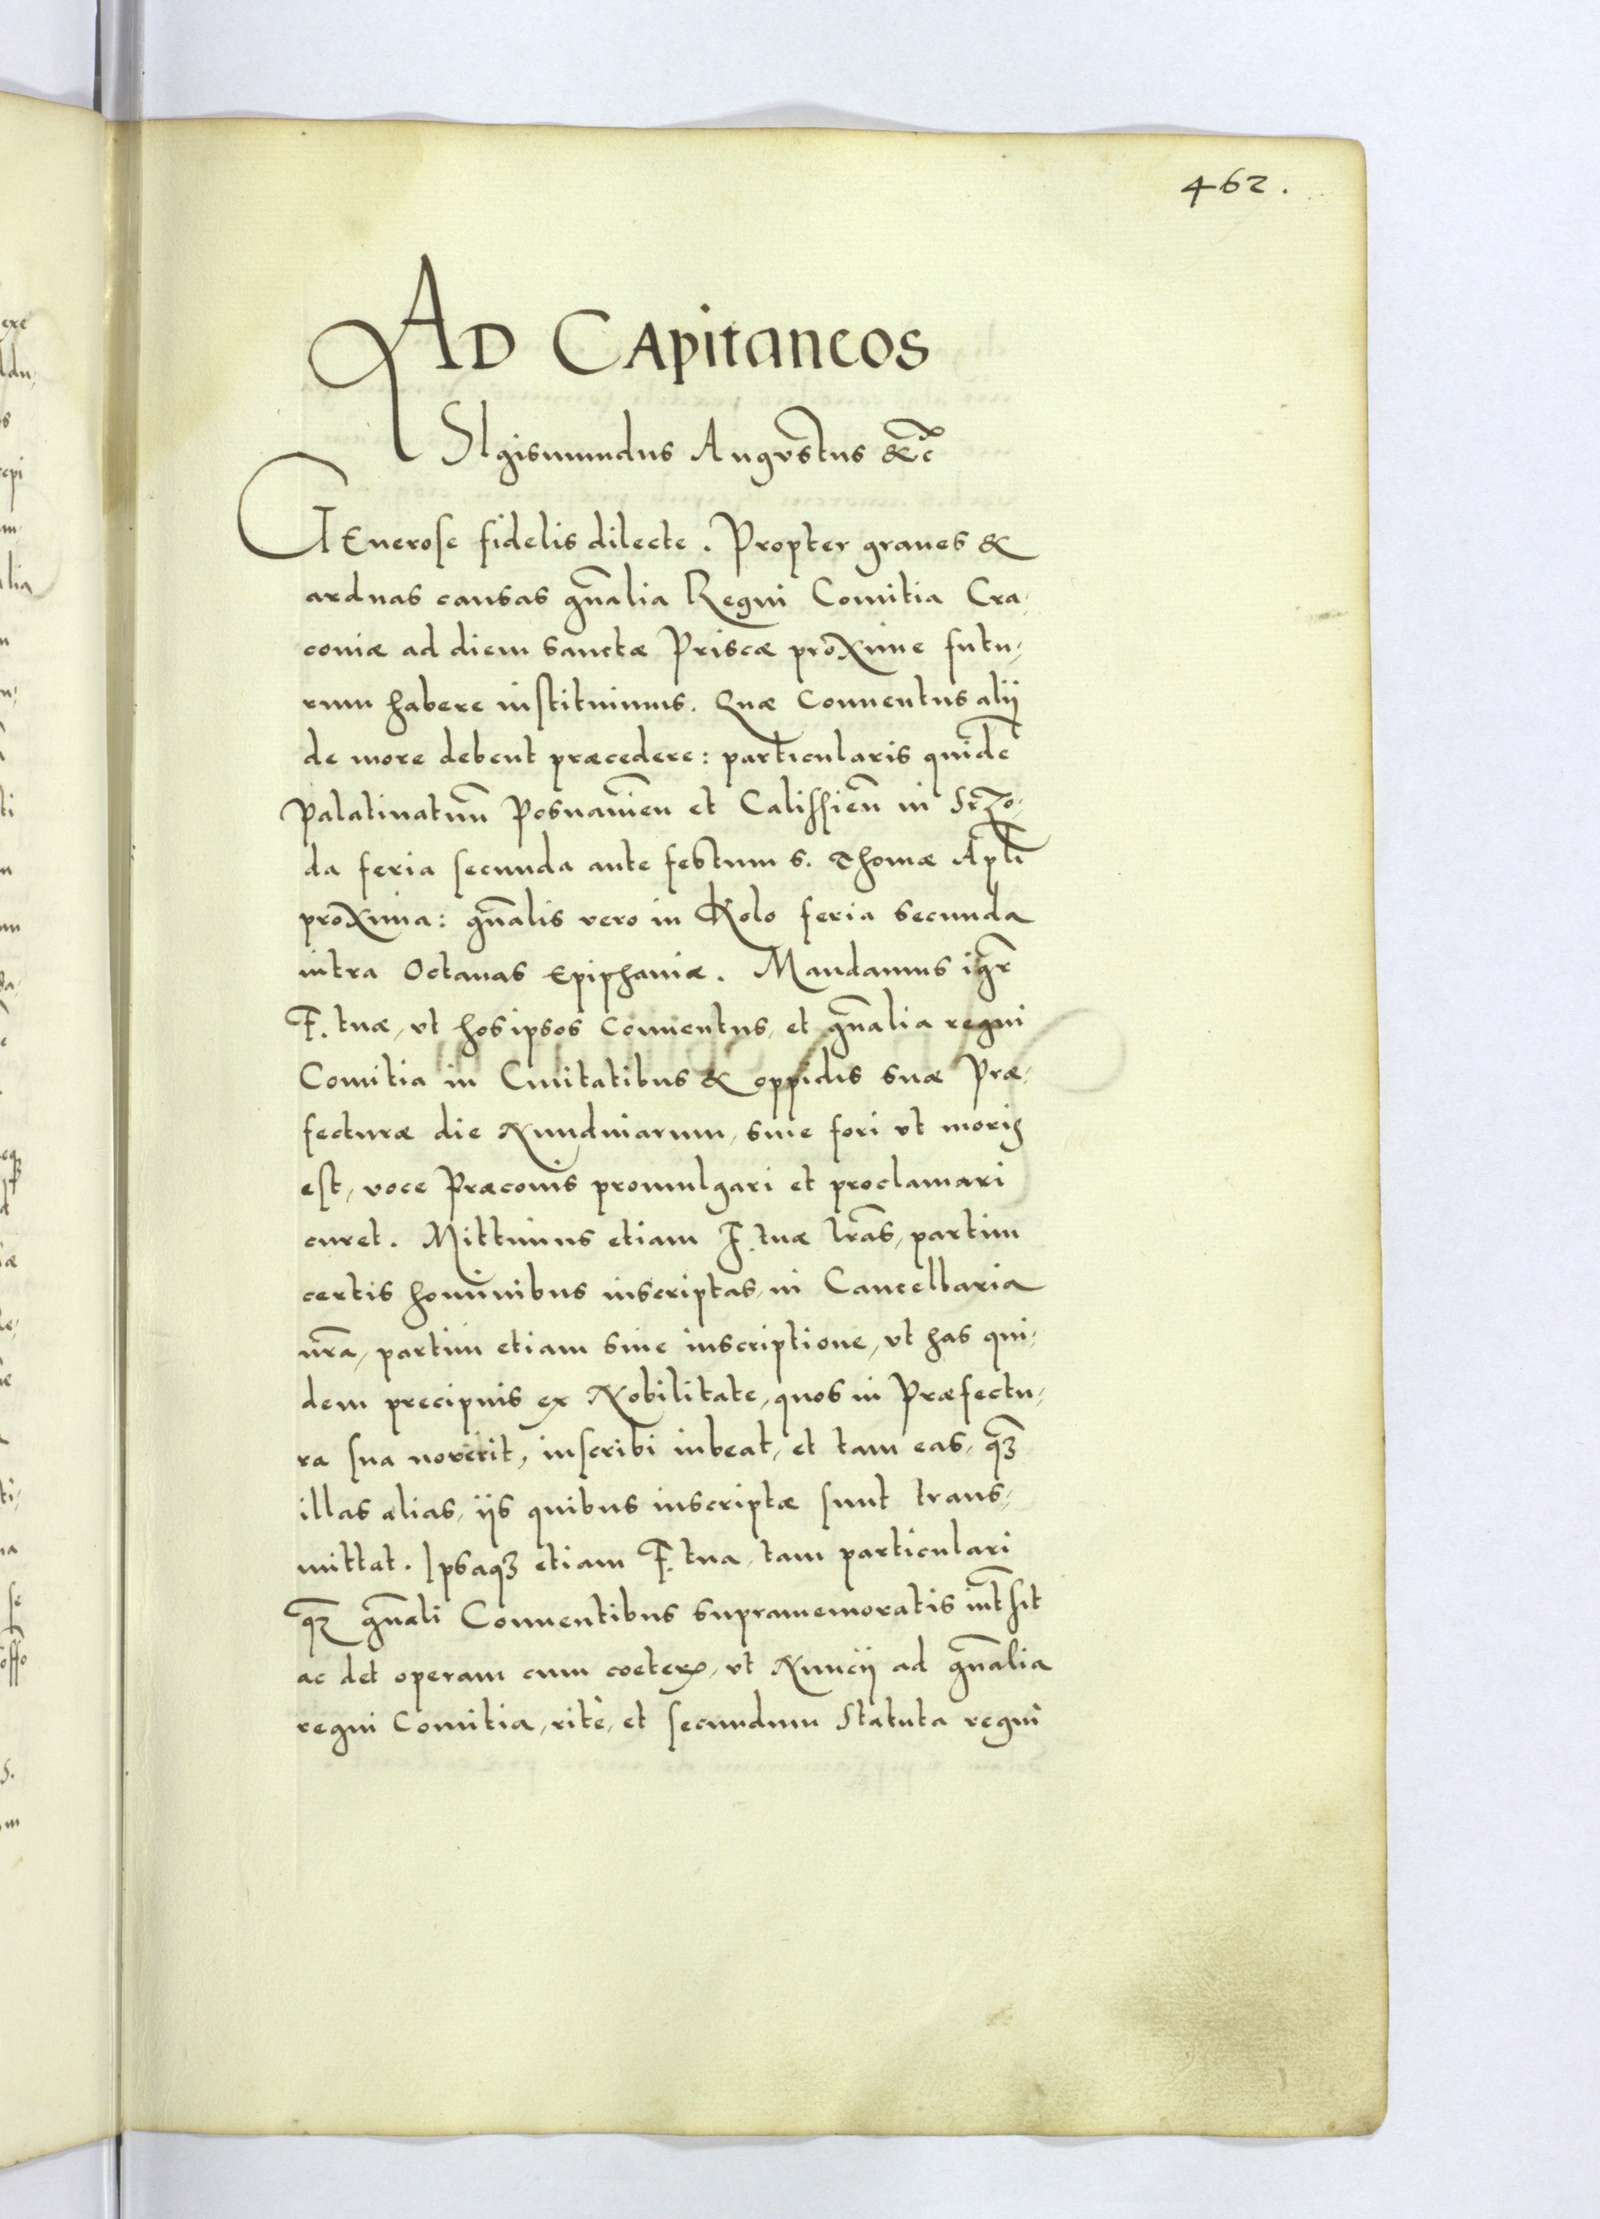 462.
AD CApitaneos
SIgismundus Augustus &c̃
GEnerose fidelis dilecte. Propter graues &
arduas causas gñalia Regni Comitia Cra,
couiæ ad diem sanctæ Priscæ proxime futu,
rum habere instituimus. Quæ Conuentus alij
de more debent præcedere: particularis quidē
Palatinatuū Posnanieñ et Calissieñ in Srzo,
da feria secunda ante festum S. Thomæ Apłi
proxima: gñalis vero in Kolo feria secunda
intra Octauas Epiphaniæ. Mandamus igr̃
F. tuæ, vt hos ipsos Conuentus, et gñalia regni
Comitia in Ciuitatibus & oppidis suæ Præ,
fecturæ die Nundinarum, siue fori vt moris
est, voce Præconis promulgari et proclamari
curet. Mittimus etiam F. tuæ lr̃as, partim
certis hominibus inscriptas, in Cancellaria
nr̃a, partim etiam sine inscriptione, vt has qui,
dem precipuis ex Nobilitate, quos in Præfectu,
ra sua norerit, inscribi iubeat, et tam eas, q̃ȝ
illas alias, ijs quibus inscriptæ sunt trans,
mittat. Ipsaqȝ etiam F. tua, tam particulari
q̃ȝ gñali Conuentibus supramemoratis int̃sit
ac det operam cum coeteris, vt Nuncij ad gñalia
regni Comitia, ritè, et secundum Statuta regni